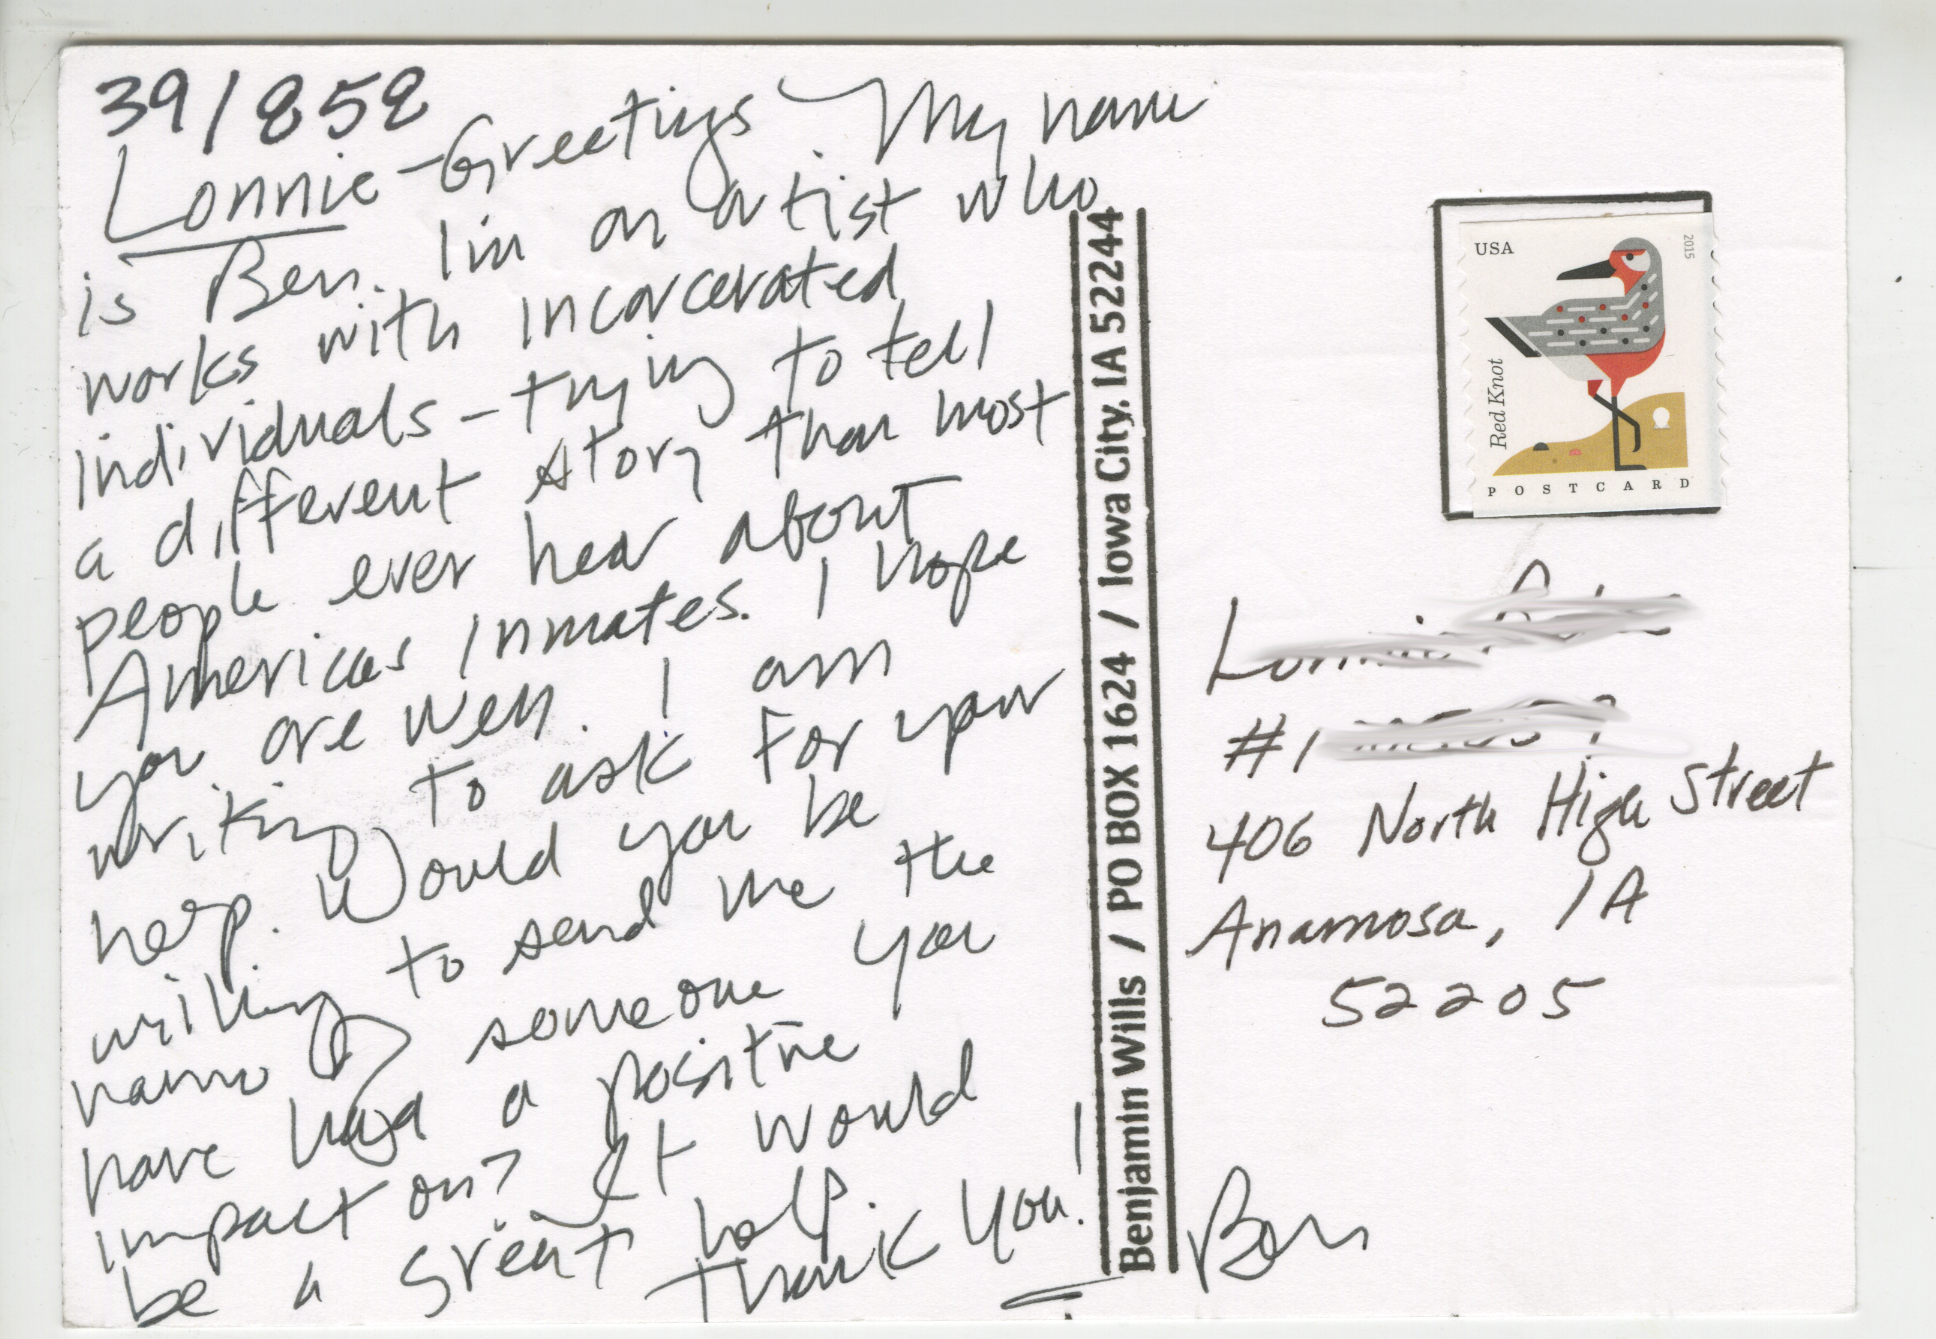 39/858
Lonnie - Greetings My name
is Ben. I'm an artist who
works with incarcerated
individuals - trying to tell
a different story than most
people ever hear about
Americas inmates. I hope
you are well. I am
writing to ask for your
help. Would you be
willing to send me the
name of someone you
have had a positive
impact on? It would
be a great help.
Thank you!
Benjamin Wills / PO BOX 1624 / Iowa City. IA 52244
USA
2015
Red Knot
POSTCARD
#1
406 North High Street
Anamosa, IA
52205
Ben